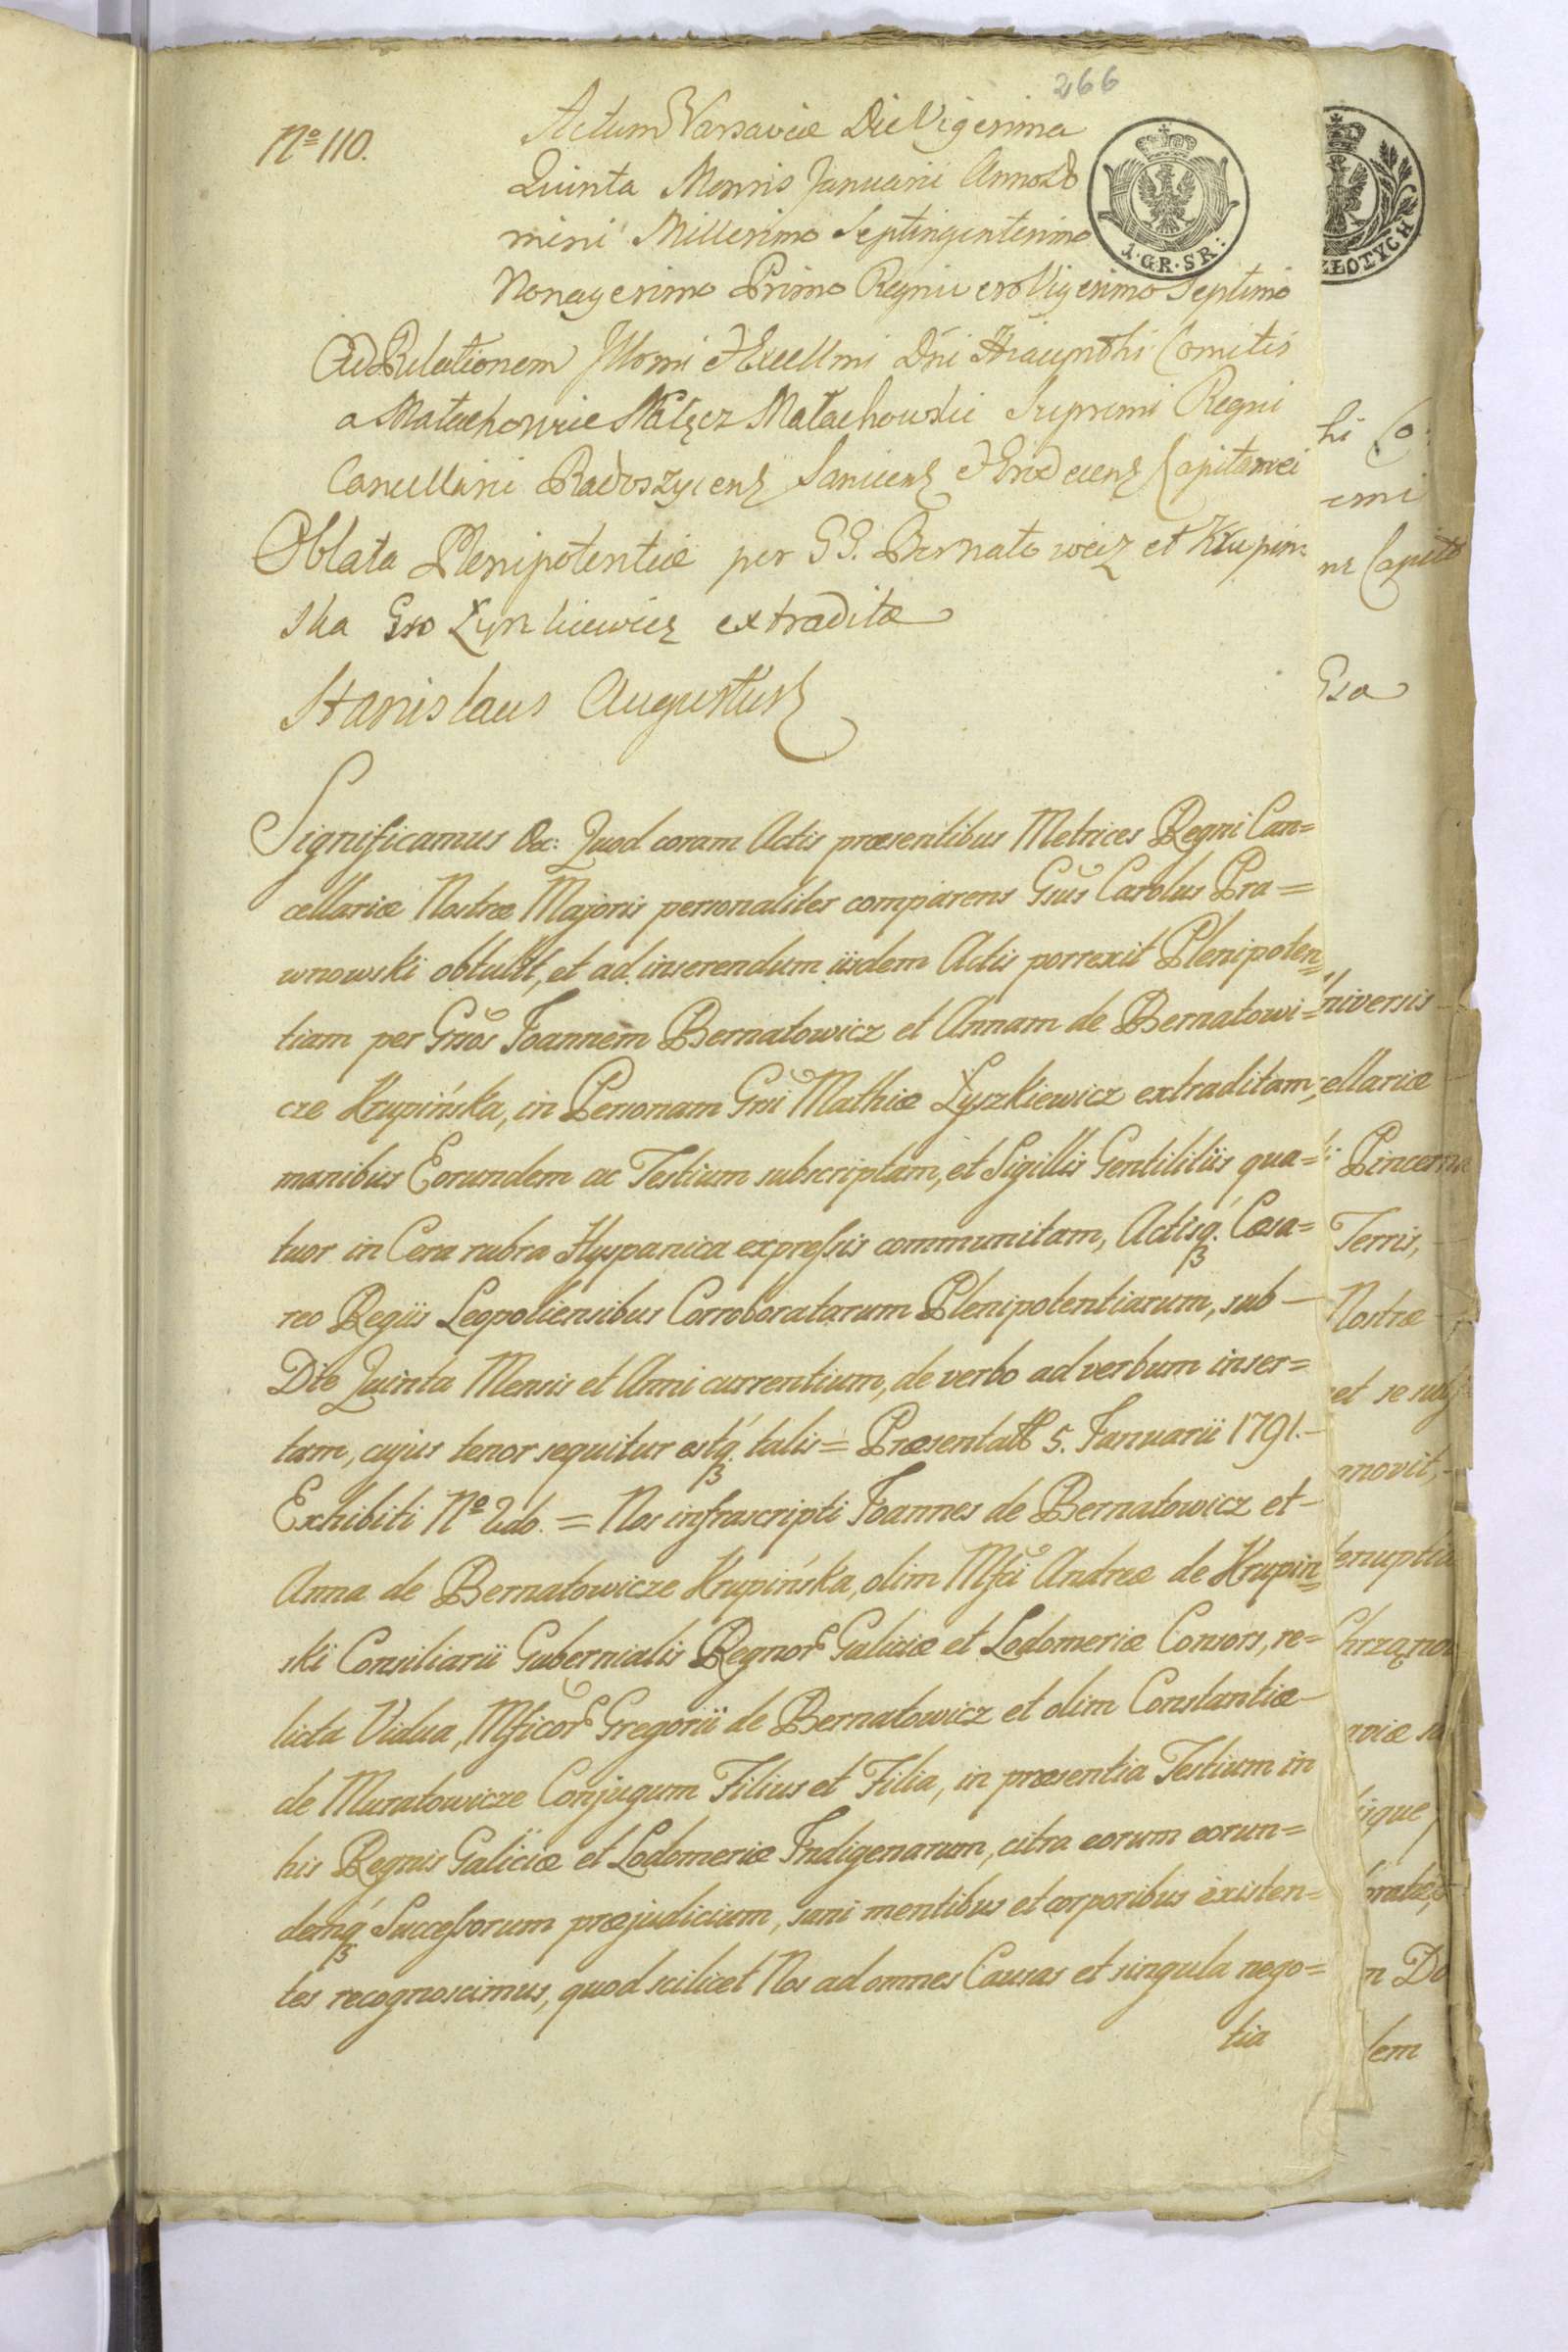 266
Nº 110.
Actum Varsaviæ Die Vigesima
Quinta Mensis Januarii Anno Do
mini Millesimo Septingentesimo
Nonagesimo Primo Regni vero Vigesimo Septimo
1·GR·SR:
ZŁOTYCH
Ad Relationem Illmi et Excellmi Dni Hiacynthi Comitis
a Małachowice Nałęcz Małachowski Supremi Regni
Cancellarii Radoszycens Saniens et Grodecens Capitanei
Oblata Plenipotentiæ per GG. Bernatowicz et Krupin=
ska Gso Łyszkiewicz extraditæ
Stanislaus Augustus
Significamus &c: Quod coram Actis præsentibus Metrices Regni Can=
cellariæ Nostræ Majoris personaliter comparens Gsus Carolus Pra=
wnowski obtulit, et ad inserendum iisdem Actis porrexit Plenipoten=
tiam per Gsos Joannem Bernatowicz et Annam de Bernatowi=
cze Krupińska, in Personam Gsi Mathiæ Łyszkiewicz extraditam,
manibus Eorundem ac Testium subscriptam, et Sigillis Gentilitiis qua=
tuor in Cera rubra Hyspanica expressis communitam, Actisq́. Cæsa=
reo Regiis Leopoliensibus Corroboratarum Plenipotentiarum, sub —
Die Quinta Mensis et Anni currentium, de verbo ad verbum inser=
tam, cujus tenor sequitur estq́. talis = Præsentat 5. Januarii 1791.—
Exhibiti Nº 2do. = Nos infrascripti Joannes de Bernatowicz et —
Anna de Bernatowicze Krupińska, olim Mfci Andreæ de Krupin=
ski Consiliarii Gubernialis Regnor Galiciæ et Lodomeriæ Consors, re=
licta Vidua, Mficor Gregorii de Bernatowicz et olim Constantiæ —
de Muratowicze Conjugum Filius et Filia, in præsentia Testium in
his Regnis Galiciæ et Lodomeriæ Indigenarum, citra eorum eorun=
demq́ Successorum præjudicium, sani mentibus et corporibus existen=
tes recognoscimus, quod scilicet Nos ad omnes Causas et singula nego=
tia
hi Co
emi
Gsa
niversis
ellariæ
Pincerna
Terris,
Nostræ
et se sub
nnovit,
Chrząno
n Do
dem